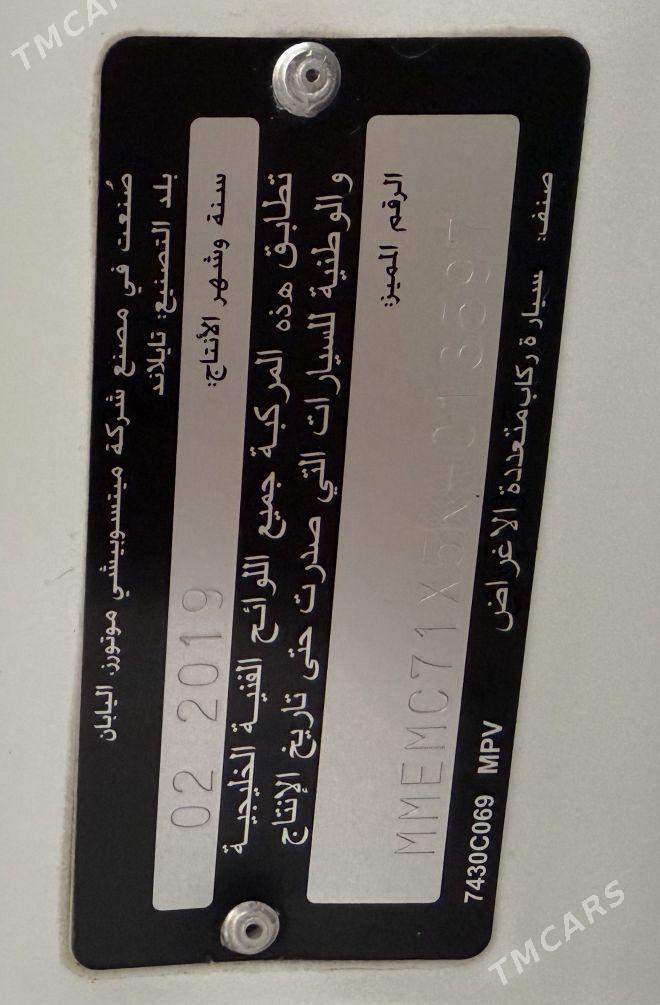 صُنعت في مصنع شركة ميتسوبيشي موتورز، اليابان
بلد التصنيع: تايلاند
سنة وشهر الأنتاج:
02 2019
تطابق هذه المركبة جميع اللوائح الفنية الخليجية
والوطنية للسيارات التي صدرت حتى تاريخ الإنتاج
الرقم المميز:
صنف: سيارة ركاب متعددة الاغراض
7430C069 MPV
TMCARS
TMCARS